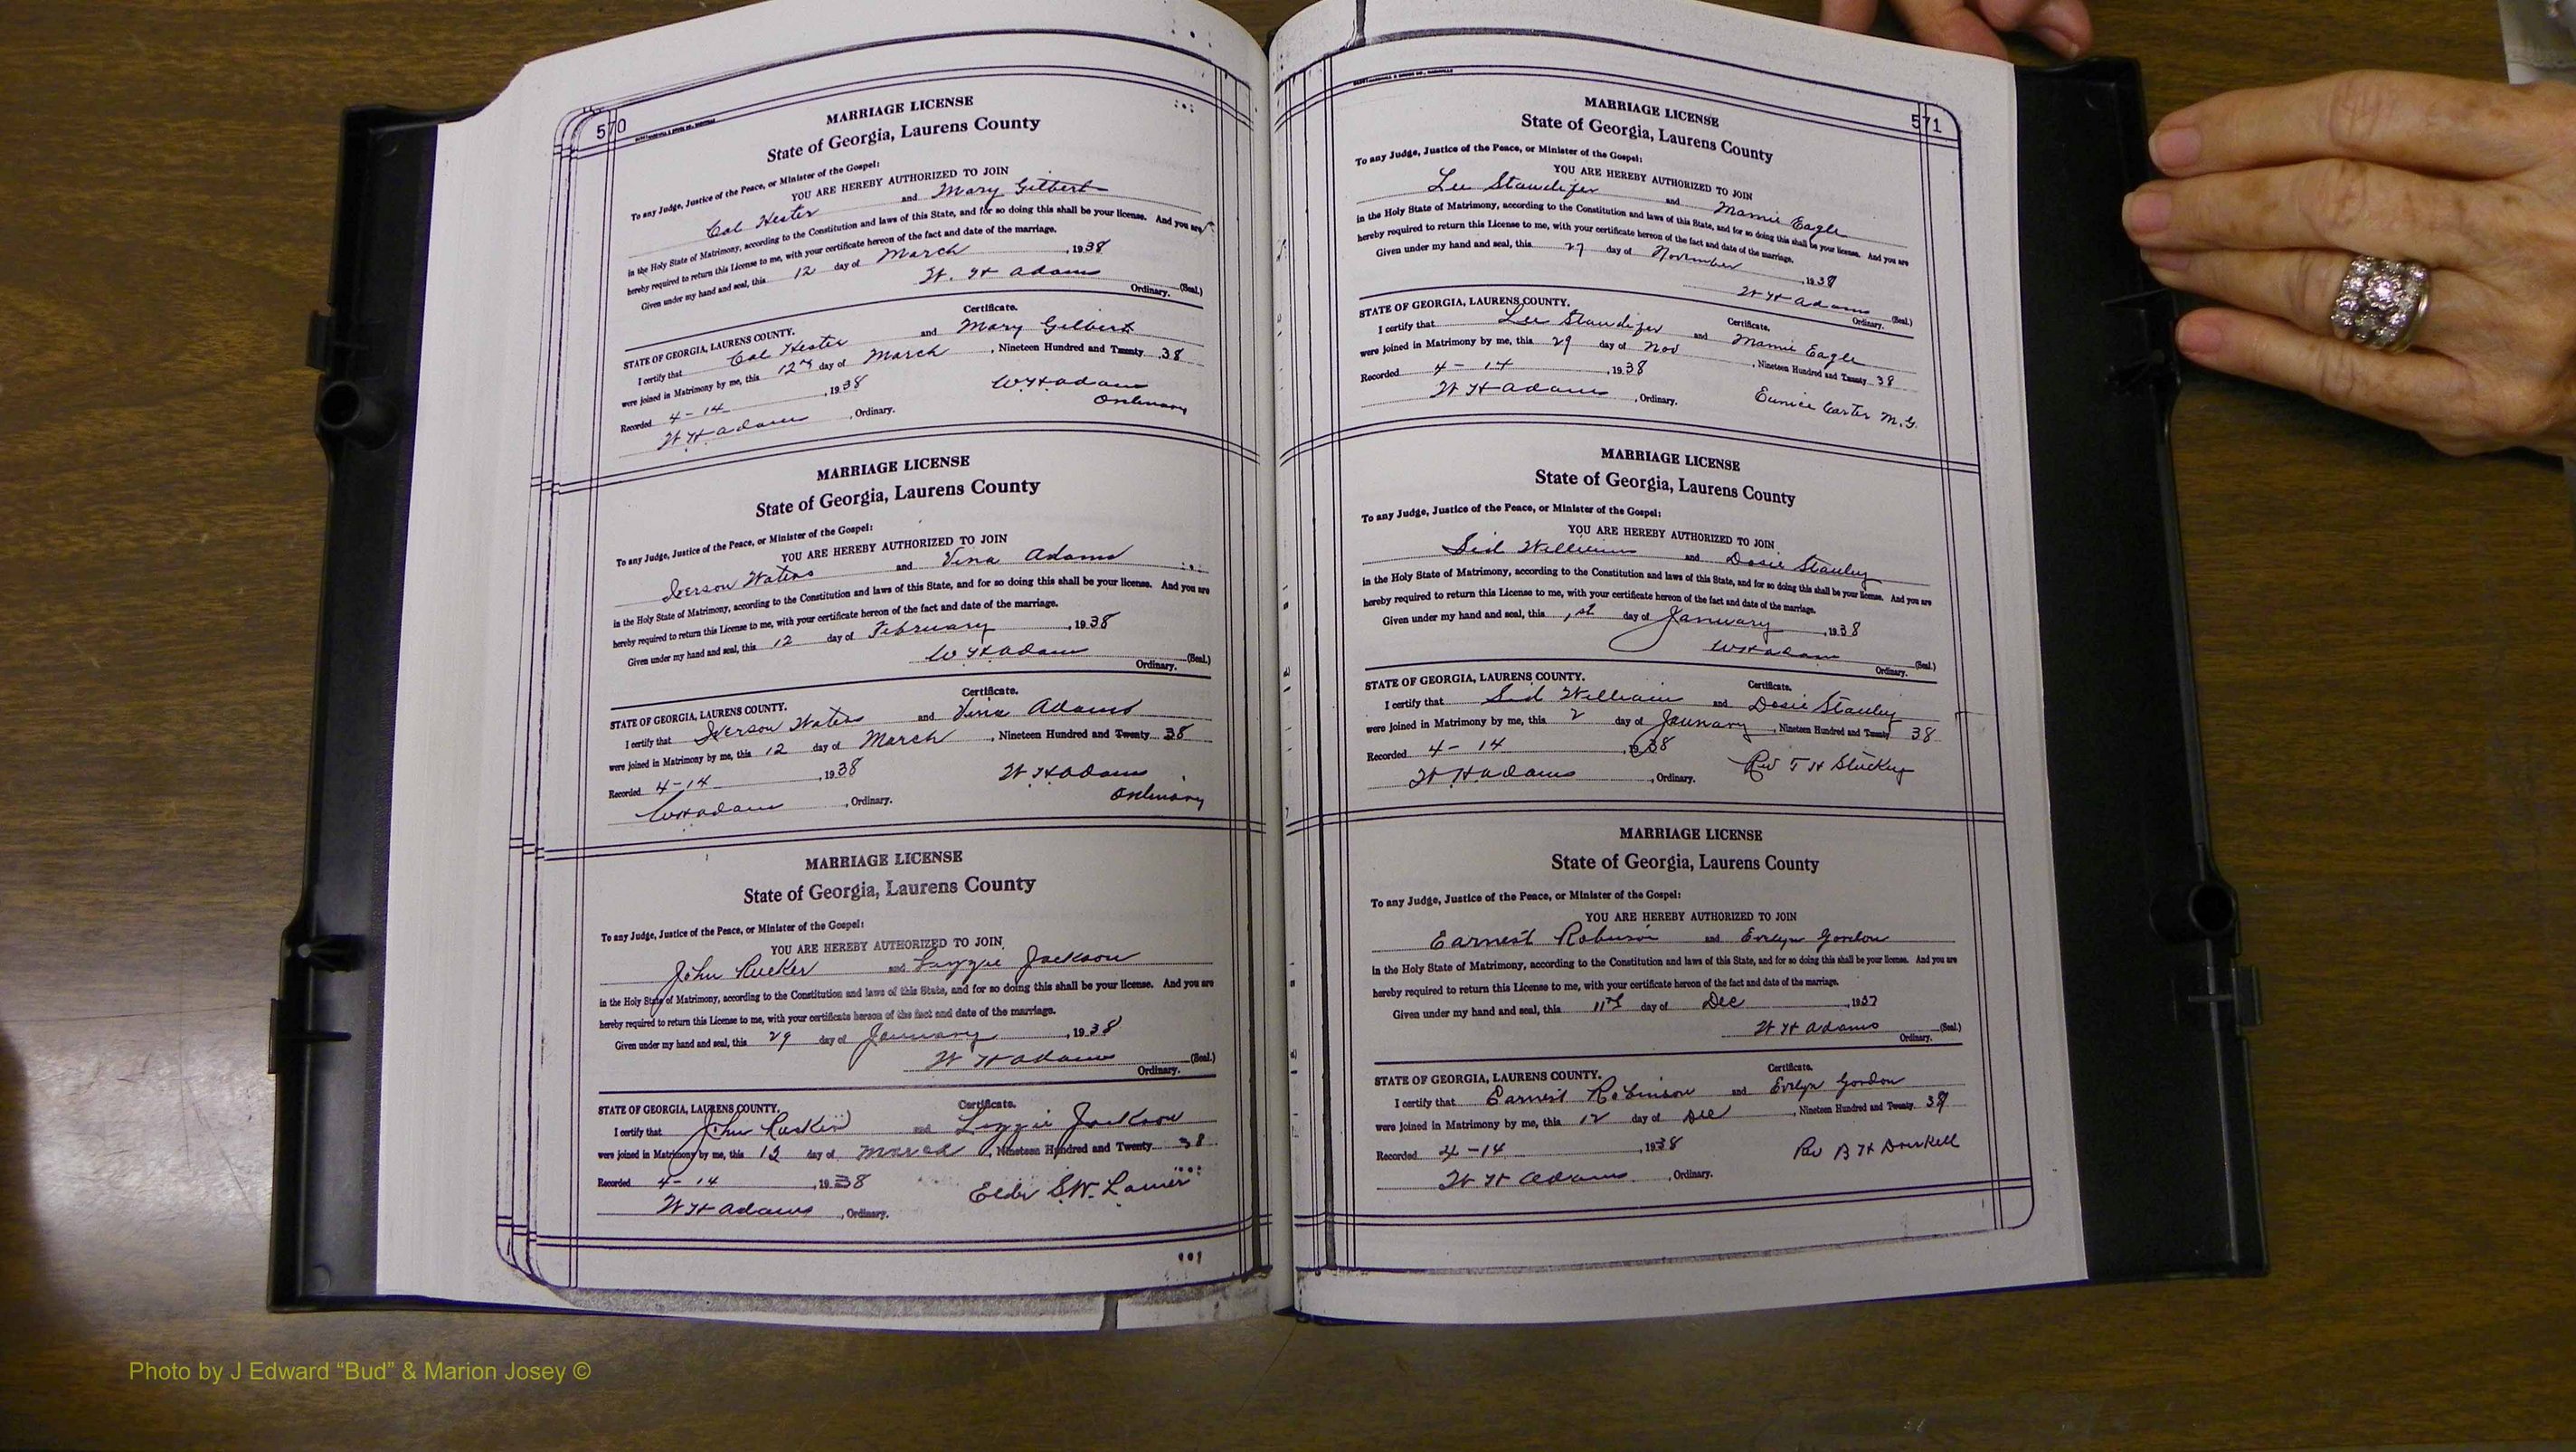 570
MARRIAGE LICENSE
State of Georgia, Laurens County
To any Judge, Justice of the Peace, or Minister of the Gospel:
YOU ARE HEREBY AUTHORIZED TO JOIN
Cal Hester and Mary Gilbert
in the Holy State of Matrimony, according to the Constitution and laws of this State, and for so doing this shall be your license. And you are
hereby required to return this License to me, with your certificate hereon of the fact and date of the marriage.
Given under my hand and seal, this 12 day of March, 1938
W. H Adams (Seal.)
Ordinary.
Certificate.
STATE OF GEORGIA, LAURENS COUNTY.
I certify that Cal Hester and Mary Gilbert
were joined in Matrimony by me, this 12 day of March, Nineteen Hundred and Twenty 38
Recorded 4-14, 1938 W H Adams
W H Adams, Ordinary. Ordinary
MARRIAGE LICENSE
State of Georgia, Laurens County
To any Judge, Justice of the Peace, or Minister of the Gospel:
YOU ARE HEREBY AUTHORIZED TO JOIN
Iverson Waters and Vina Adams
in the Holy State of Matrimony, according to the Constitution and laws of this State, and for so doing this shall be your license. And you are
hereby required to return this License to me, with your certificate hereon of the fact and date of the marriage.
Given under my hand and seal, this 12 day of February, 1938
W H Adams (Seal.)
Ordinary.
Certificate.
STATE OF GEORGIA, LAURENS COUNTY.
I certify that Iverson Waters and Vina Adams
were joined in Matrimony by me, this 12 day of March, Nineteen Hundred and Twenty 38
Recorded 4-14, 1938 W H Adams
W H Adams, Ordinary. Ordinary
MARRIAGE LICENSE
State of Georgia, Laurens County
To any Judge, Justice of the Peace, or Minister of the Gospel:
YOU ARE HEREBY AUTHORIZED TO JOIN
John Rucker and Lizzie Jackson
in the Holy State of Matrimony, according to the Constitution and laws of this State, and for so doing this shall be your license. And you are
hereby required to return this License to me, with your certificate hereon of the fact and date of the marriage.
Given under my hand and seal, this 29 day of January, 1938
W H Adams (Seal.)
Ordinary.
Certificate.
STATE OF GEORGIA, LAURENS COUNTY.
I certify that John Rucker and Lizzie Jackson
were joined in Matrimony by me, this day of March, Nineteen Hundred and Twenty 38
Recorded 4-14, 1938 Elder S.W. Lanier
W H Adams, Ordinary.
571
MARRIAGE LICENSE
State of Georgia, Laurens County
To any Judge, Justice of the Peace, or Minister of the Gospel:
YOU ARE HEREBY AUTHORIZED TO JOIN
Lee Standifer and Mamie Eagle
in the Holy State of Matrimony, according to the Constitution and laws of this State, and for so doing this shall be your license. And you are
hereby required to return this License to me, with your certificate hereon of the fact and date of the marriage.
Given under my hand and seal, this 27 day of November, 1938
W H Adams (Seal.)
Ordinary.
Certificate.
STATE OF GEORGIA, LAURENS COUNTY.
I certify that Lee Standifer and Mamie Eagle
were joined in Matrimony by me, this 29 day of Nov, Nineteen Hundred and Twenty 38
Recorded 4-14, 1938
W H Adams, Ordinary. Eunice Carter M.G.
MARRIAGE LICENSE
State of Georgia, Laurens County
To any Judge, Justice of the Peace, or Minister of the Gospel:
YOU ARE HEREBY AUTHORIZED TO JOIN
Sid Williams and Dosie Stanley
in the Holy State of Matrimony, according to the Constitution and laws of this State, and for so doing this shall be your license. And you are
hereby required to return this License to me, with your certificate hereon of the fact and date of the marriage.
Given under my hand and seal, this 1st day of January, 1938
W H Adams (Seal.)
Ordinary.
Certificate.
STATE OF GEORGIA, LAURENS COUNTY.
I certify that Sid William and Dosie Stanley
were joined in Matrimony by me, this 2 day of January, Nineteen Hundred and Twenty 38
Recorded 4-14, 1938
W H Adams, Ordinary. Rev T H Stuckey
MARRIAGE LICENSE
State of Georgia, Laurens County
To any Judge, Justice of the Peace, or Minister of the Gospel:
YOU ARE HEREBY AUTHORIZED TO JOIN
Earnest Robinson and Evelyn Gordon
in the Holy State of Matrimony, according to the Constitution and laws of this State, and for so doing this shall be your license. And you are
hereby required to return this License to me, with your certificate hereon of the fact and date of the marriage.
Given under my hand and seal, this 11th day of Dec, 1937
W H Adams (Seal.)
Ordinary.
Certificate.
STATE OF GEORGIA, LAURENS COUNTY.
I certify that Earnest Robinson and Evelyn Gordon
were joined in Matrimony by me, this 12 day of Dec, Nineteen Hundred and Twenty
Recorded 4-14, 1938 Rev B H
W H Adams, Ordinary.
Photo by J Edward “Bud” & Marion Josey ©